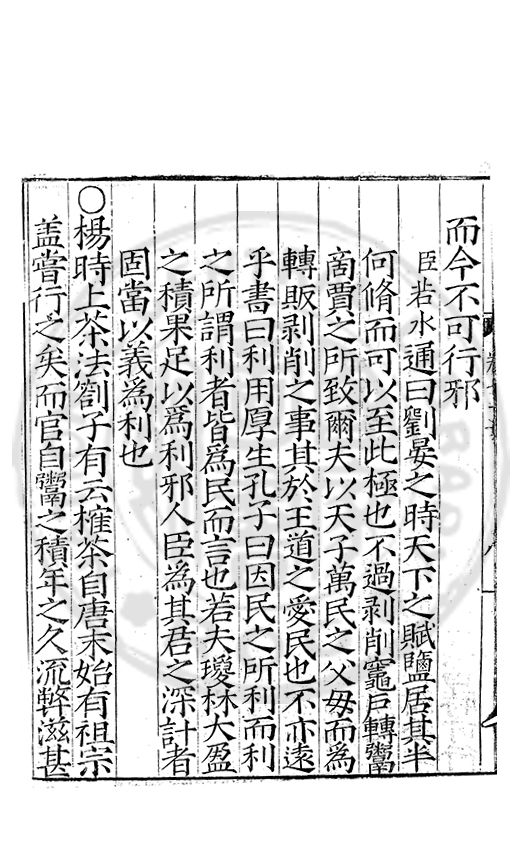 而今不可行邪
臣若水通曰劉晏之時天下之賦鹽居其半
何脩而可以至此極也不過剥削竈戶轉鬻
啇賈之所致爾夫以天子萬民之父毋而為
轉販剥削之事其於王道之愛民也不亦遠
乎書曰利用厚生孔子曰因民之所利而利
之所謂利者皆為民而言也若夫瓊林大盈
之積果足以爲利邪人臣為其君之深計者
固當以義為利也
○楊時上茶法劄子有云榷茶自唐末始有祖宗
盖嘗行之矣而官自鬻之積年之久流弊滋甚